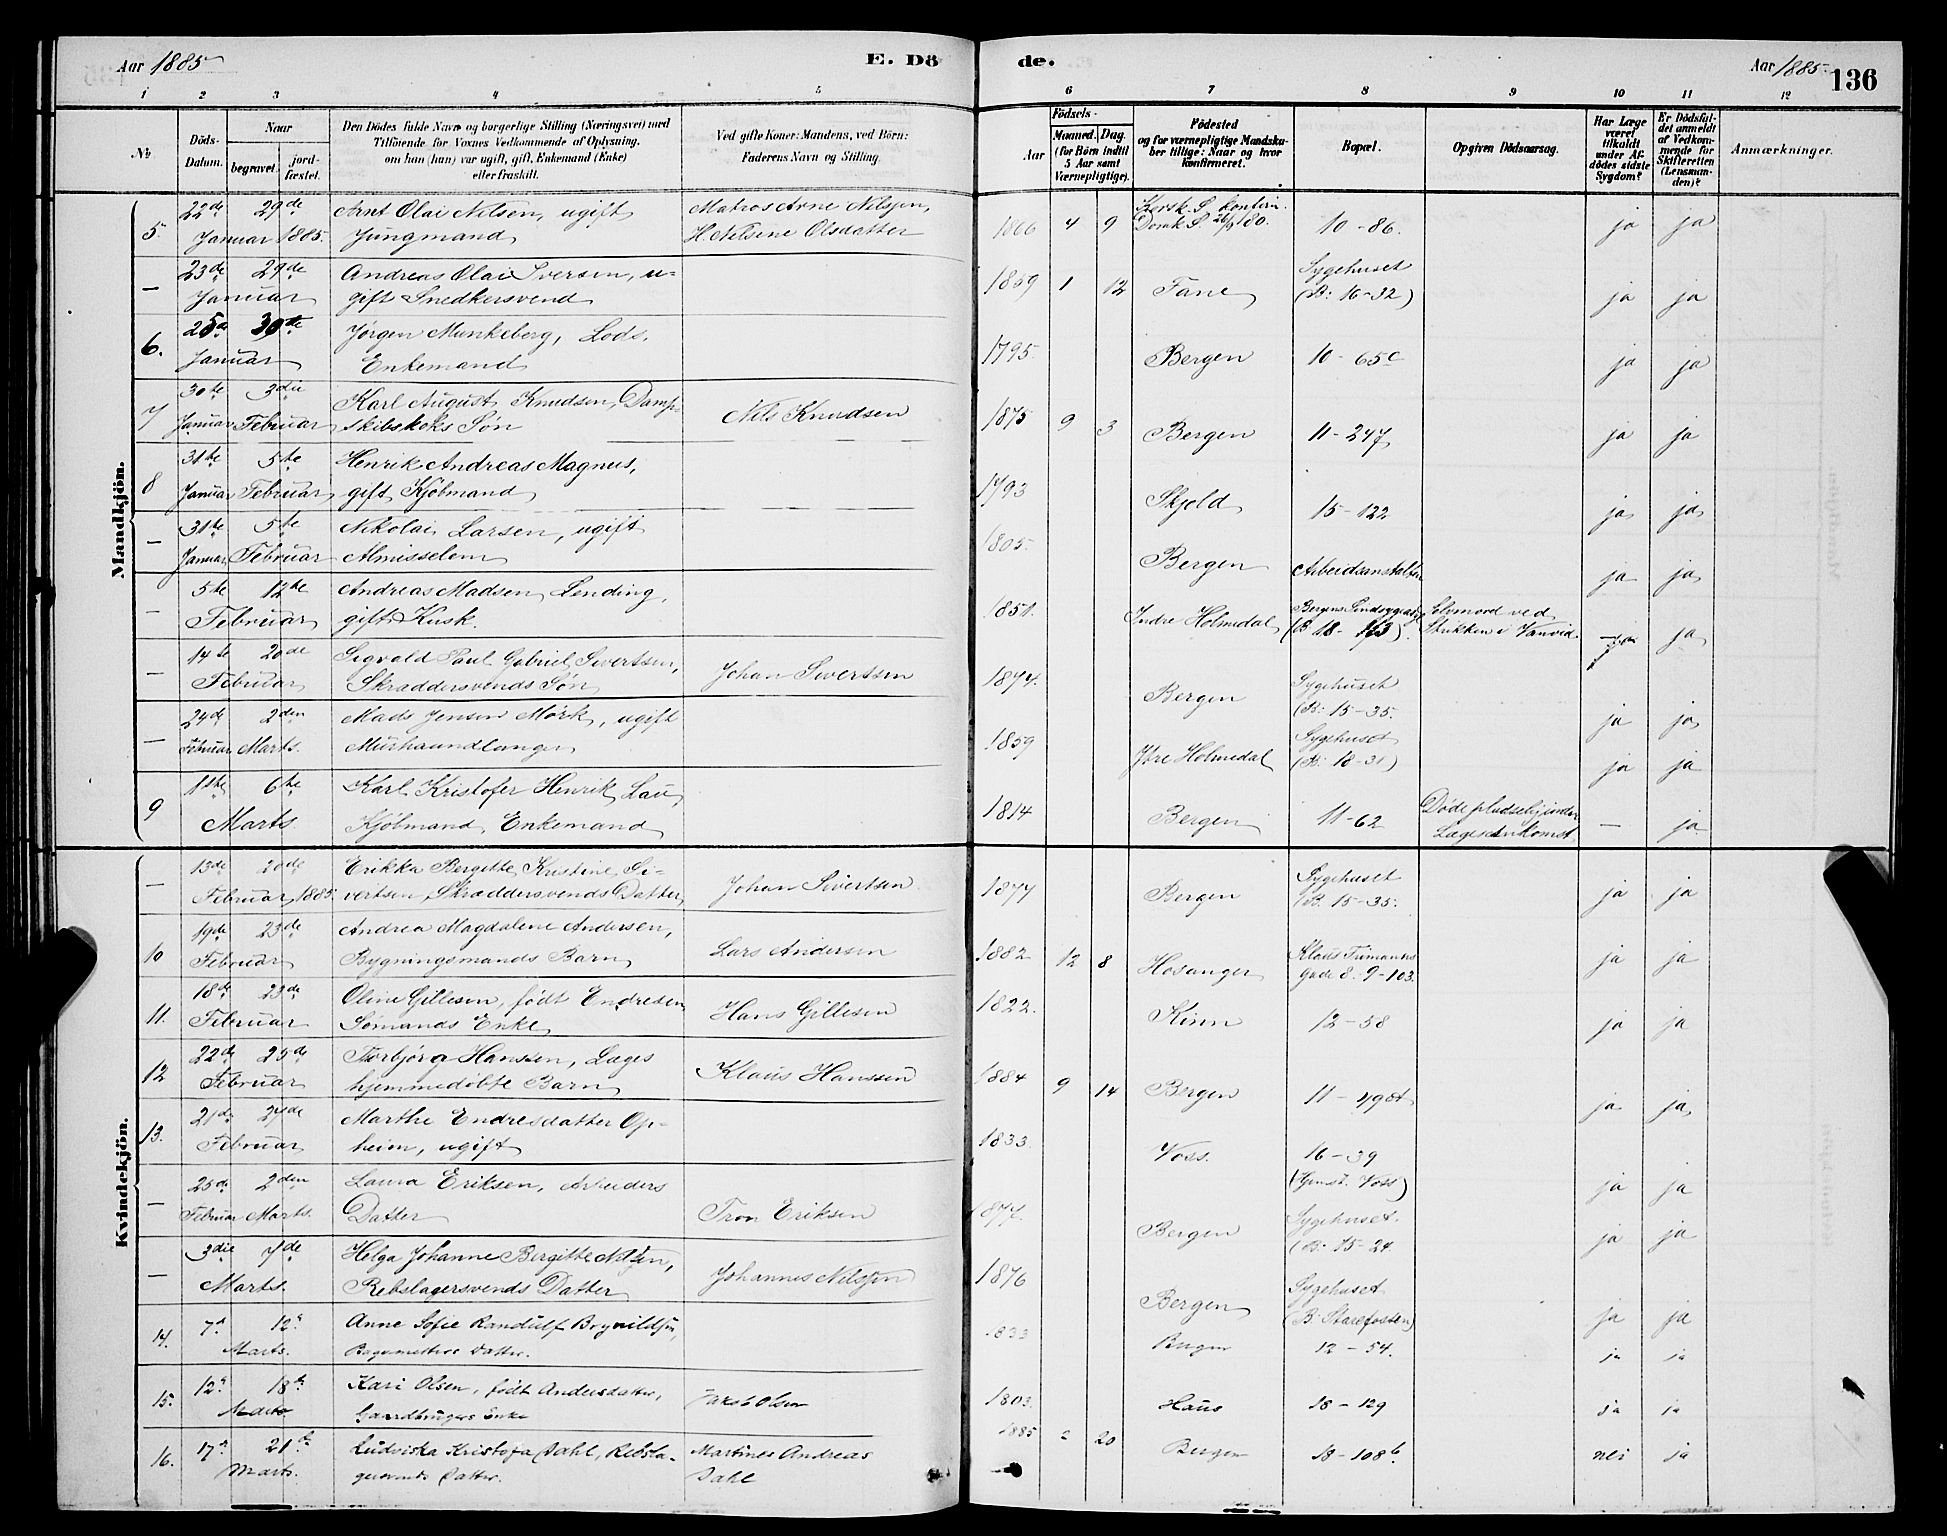 Aar 1885
E. Dö
de.
Aar 1885
136
1 2 3 4 5 6 7 8 9 10 11 12
No
Döds-Datum.
Naar
begravet.
jord-fæstet.
Den Dödes fulde Navn og borgerlige Stilling (Næringsvei) med
Tilföiende for Voxnes Vedkommende af Oplysning,
om han (hun) var ugift, gift, Enkemand (Enke)
eller fraskilt.
Ved gifte Koner: Mandens, ved Börn:
Faderens Navn og Stilling.
Födsels-
Aar
Maaned. Dag.
(for Börn indtil
5 Aar samt
Værnepligtige).
Födested
og for værnepligtige Mandska-
ber tillige: Naar og hvor
konfirmeret.
Bopæl.
Opgiven Dödsaarsag.
Har Læge
været
tilkaldt
under Af-
dödes sidste
Sygdom?
Er Dödsfal-
det anmeldt
af Vedkom-
mende for
Skifteretten
(Lensman-
den)?
Anmærkninger.
Mandkjön.
5. 22de 29de Arnt Olai Nilsen, ugift Matros Arne Nilsen, 1866 4 9 Korsk. S. konfir. 10-86. ja ja
Januar 1885. Jungmand H. Nilsine Olsdatter Domk. S. 80.
— 23de 29de Andreas Olai Iversen, u- 1859 1 12 Fane Sygehuset ja ja
Januar gift Snedkersvend (B: 16-32)
6. 25de 30te Jørgen Munkeberg, Lods, 1795. Bergen 10-65c ja ja
Januar Enkemand
7 30te 3die Karl August Knudsen, Damp- Nils Knudsen 1875 9 3 Bergen 11-247 ja ja
Januar Februar skibskoks Søn
8 31te 5te Henrik Andreas Magnus, 1793 Skjold 15-122 ja ja
Januar Februar gift Kjøbmand
— 31te 5te Nikolai Larsen, ugift 1805. Bergen Arbeidsanstalten ja ja
Januar Februar Almisselem
— 5te 12te Andreas Madsen Lending, 1851. Indre Holmedal Bergens Sindsygeas. Selvmord ved ja ja
Februar gift Kusk. (B 18- ) Strikken i Vanvid.
— 14de 20de Sigvald Paul Gabriel Sivertsen, Johan Sivertsen 1874. Bergen Sygehuset ja ja
Februar Skraddersvends Søn (B: 15-35.
— 24de 2den Mads Jensen Mørk, ugift 1859 Ytre Holmedal Sygehuset ja ja
Februar Marts. Murhaandlanger (B: 18-31)
9 1ste 6te Karl Kristofer Henrik Lau, 1814 Bergen 11-62 Døde pludselig inden — ja
Marts Kjøbmand, Enkemand Lægens Ankomst.
Kvindekjön.
— 13de 20de Erikka Bergitte Kristine Si- Johan Sivertsen 1877 Bergen Sygehuset ja ja
Februar 1885. vertsen, Skraddersvends Datter (B. 15-35.
10 19de 23de Andrea Magdalene Andersen, Lars Andersen 1882 12 8 Hosanger Klaus ja ja
Februar Bygningsmands Barn gade 8. 9-103.
11. 18de 23de Oline Gillesen, født Endresen Hans Gillesen 1822. Kinn 12-58 ja ja
Februar Sømands Enke
12 22de 25de Torbjørg Hanssen, Læges Klaus Hanssen 1884 9 14 Bergen 11-49 ja ja
Februar hjemmedøbte Barn
13. 21de 27de Marthe Endresdatter Op- 1833. Voss. 16-39 ja ja
Februar heim, ugift (Hjemst. Voss)
— 25de 2den Laura Eriksen, Arbeiders Tron Eriksen 1877. Bergen Sygehuset. ja ja
Februar Marts. Datter (B: 15-24.
— 3die 7de Helga Johanne Bergitte Nilsen, Johannes Nilssen 1876 Bergen Sygehuset ja ja
Marts. Rebslagersvends Datter (B: Starefossen)
14. 7de 12te Anne Sofie Randulf Brynildsen, 1833 Bergen 12-54. ja ja
Marts. Bagermesters Datter.
15. 12te 18de Kari Olsen, født Andersdatter, Jakob Olsen 1803. Haus 18-129 ja ja
Marts Gaardbrugers Enke
16. 17de 21de Ludviska Kristofa Dahl, Rebsla- Martines Andreas 1885 2 20 Bergen 18-108b. nei ja
Marts. gersvends Datter. Dahl